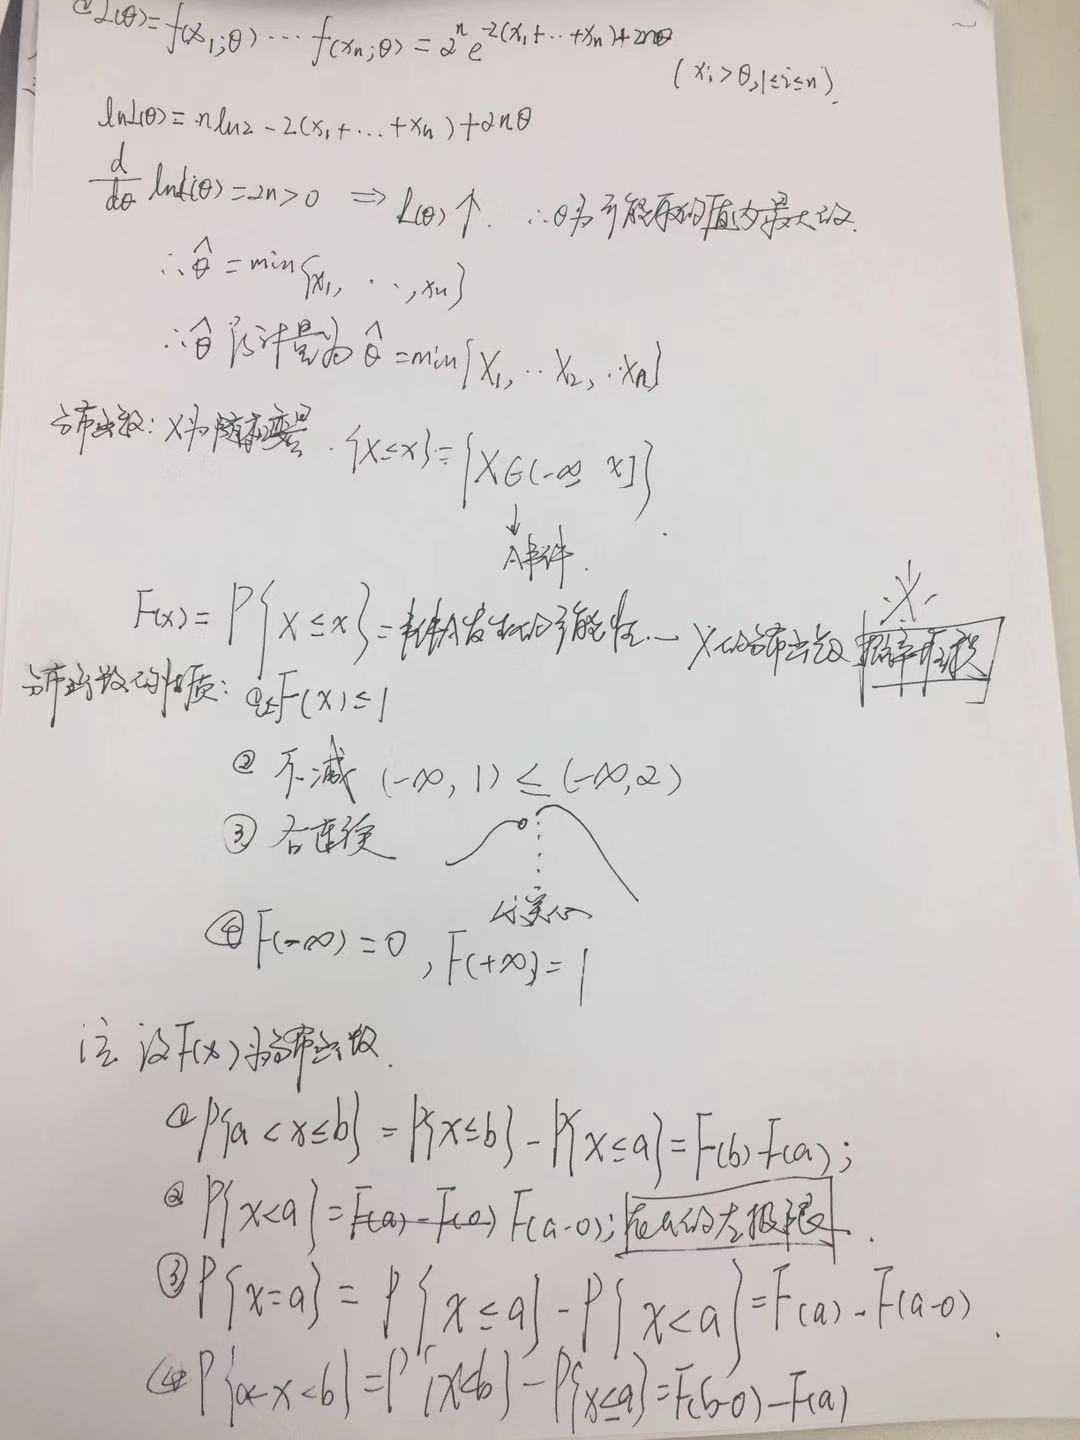 ② L(θ)=f(x₁;θ)⋯f(xₙ;θ)=2ⁿe^{-2(x₁+⋯+xₙ)+2nθ}
(xᵢ>θ,1≤i≤n).
lnL(θ)=nln2-2(x₁+⋯+xₙ)+2nθ
d/dθ lnL(θ)=2n>0 ⇒ L(θ)↑. ∴θ为可能取的值内最大的.
∴θ̂=min{x₁,⋯,xₙ}
∴θ̂估计量为θ̂=min{X₁,⋯X₂,⋯Xₙ}
分布函数:X为随机变量.{X≤x}={X∈(-∞ x]}
↓
A事件.
F(x)=P{X≤x}=事件A发生的可能性—X的分布函数 概率累积
分布函数的性质: ①0≤F(x)≤1
② 不减 (-∞,1)≤(-∞,2)
③ 右连续
④F(-∞)=0,F(+∞)=1
注 设F(x)为分布函数.
①P{a<x≤b}=P{x≤b}-P{x≤a}=F(b)-F(a);
②P{x<a}=F(a)-F(a) F(a-0);在a的左极限.
③P{x=a}=P{x≤a}-P{x<a}=F(a)-F(a-0).
④P{a<x<b}=P{x<b}-P{x≤a}=F(b-0)-F(a)